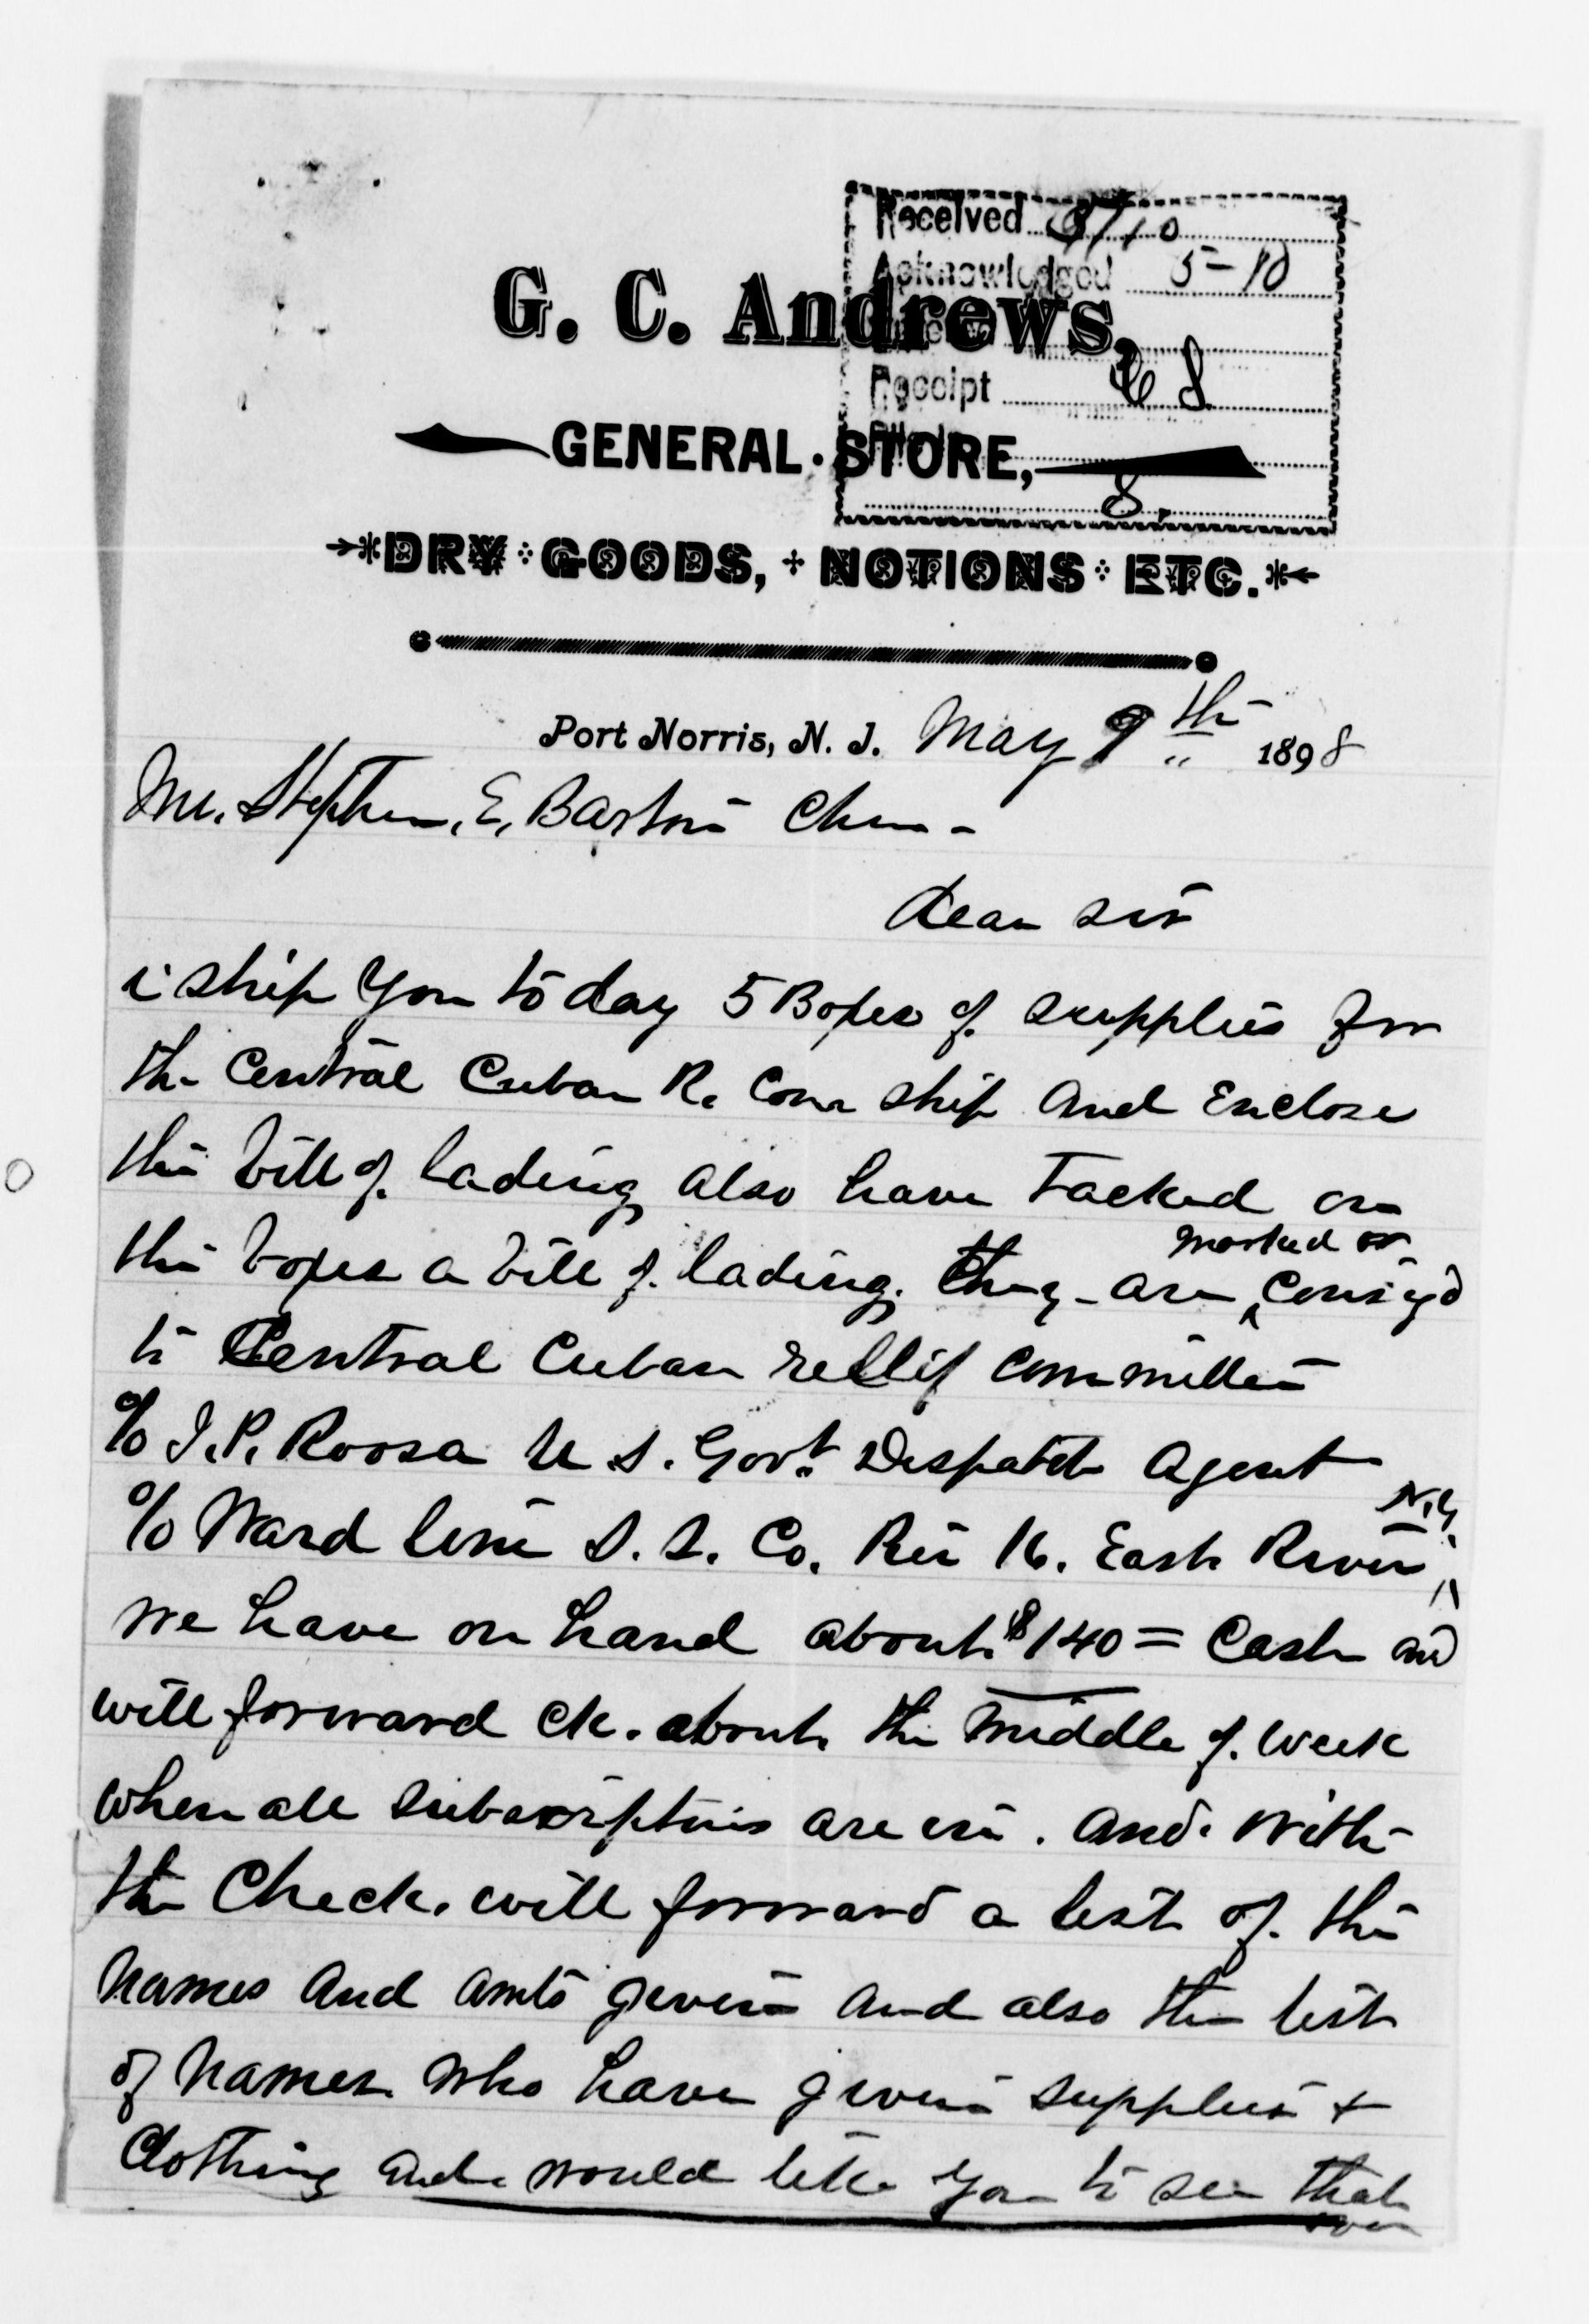 Received 5/10
Acknowledged 5-10
G. C. Andrews,
Receipt
GENERAL STORE,
DRY GOODS, NOTIONS ETC.
Port Norris, N. J. May 9th 1898
Mr. Stephen. E. Barton Chm -
Dear Sir
i ship you to day 5 Boxes of supplies for
the Central Cuban R. Com ship and Enclose
the bill of lading also have Tacked on
the boxes a bill of lading. they are marked or consig'd
to Central Cuban rellif committee
c/o I. P. Roosa U. S. Govt Despatch Agent
c/o Ward line S. S. Co. Pier 16. East River N.Y.
We have on hand about $140= Cash and
will forward ck. about the middle of week
when all subscriptions are in. and with
the Check. will forward a list of the
names and amts given and also the list
of names who have given supplies +
Clothing and would like you to see that
over